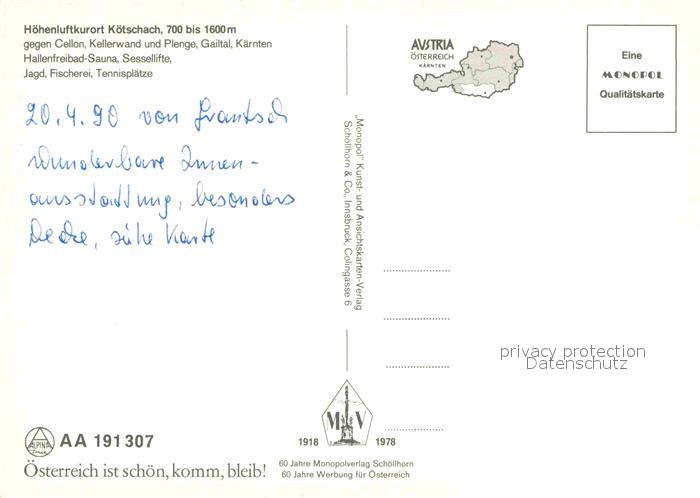 Höhenluftkurort Kötschach, 700 bis 1600 m
gegen Cellon, Kellerwand und Plenge, Gailtal, Kärnten
Hallenfreibad-Sauna, Sessellifte,
Jagd, Fischerei, Tennisplätze
20.4.90 von
wunderbare Innen-
ausstattung, besonders
Decke, siehe Karte
„Monopol" Kunst- und Ansichtskarten-Verlag
Schöllhorn & Co., Innsbruck, Colingasse 6
AVSTRIA
ÖSTERREICH
KÄRNTEN
Eine
MONOPOL
Qualitätskarte
privacy protection
Datenschutz
ALPINA
AA 191 307
Österreich ist schön, komm, bleib!
M V
1918 1978
60 Jahre Monopolverlag Schöllhorn
60 Jahre Werbung für Österreich